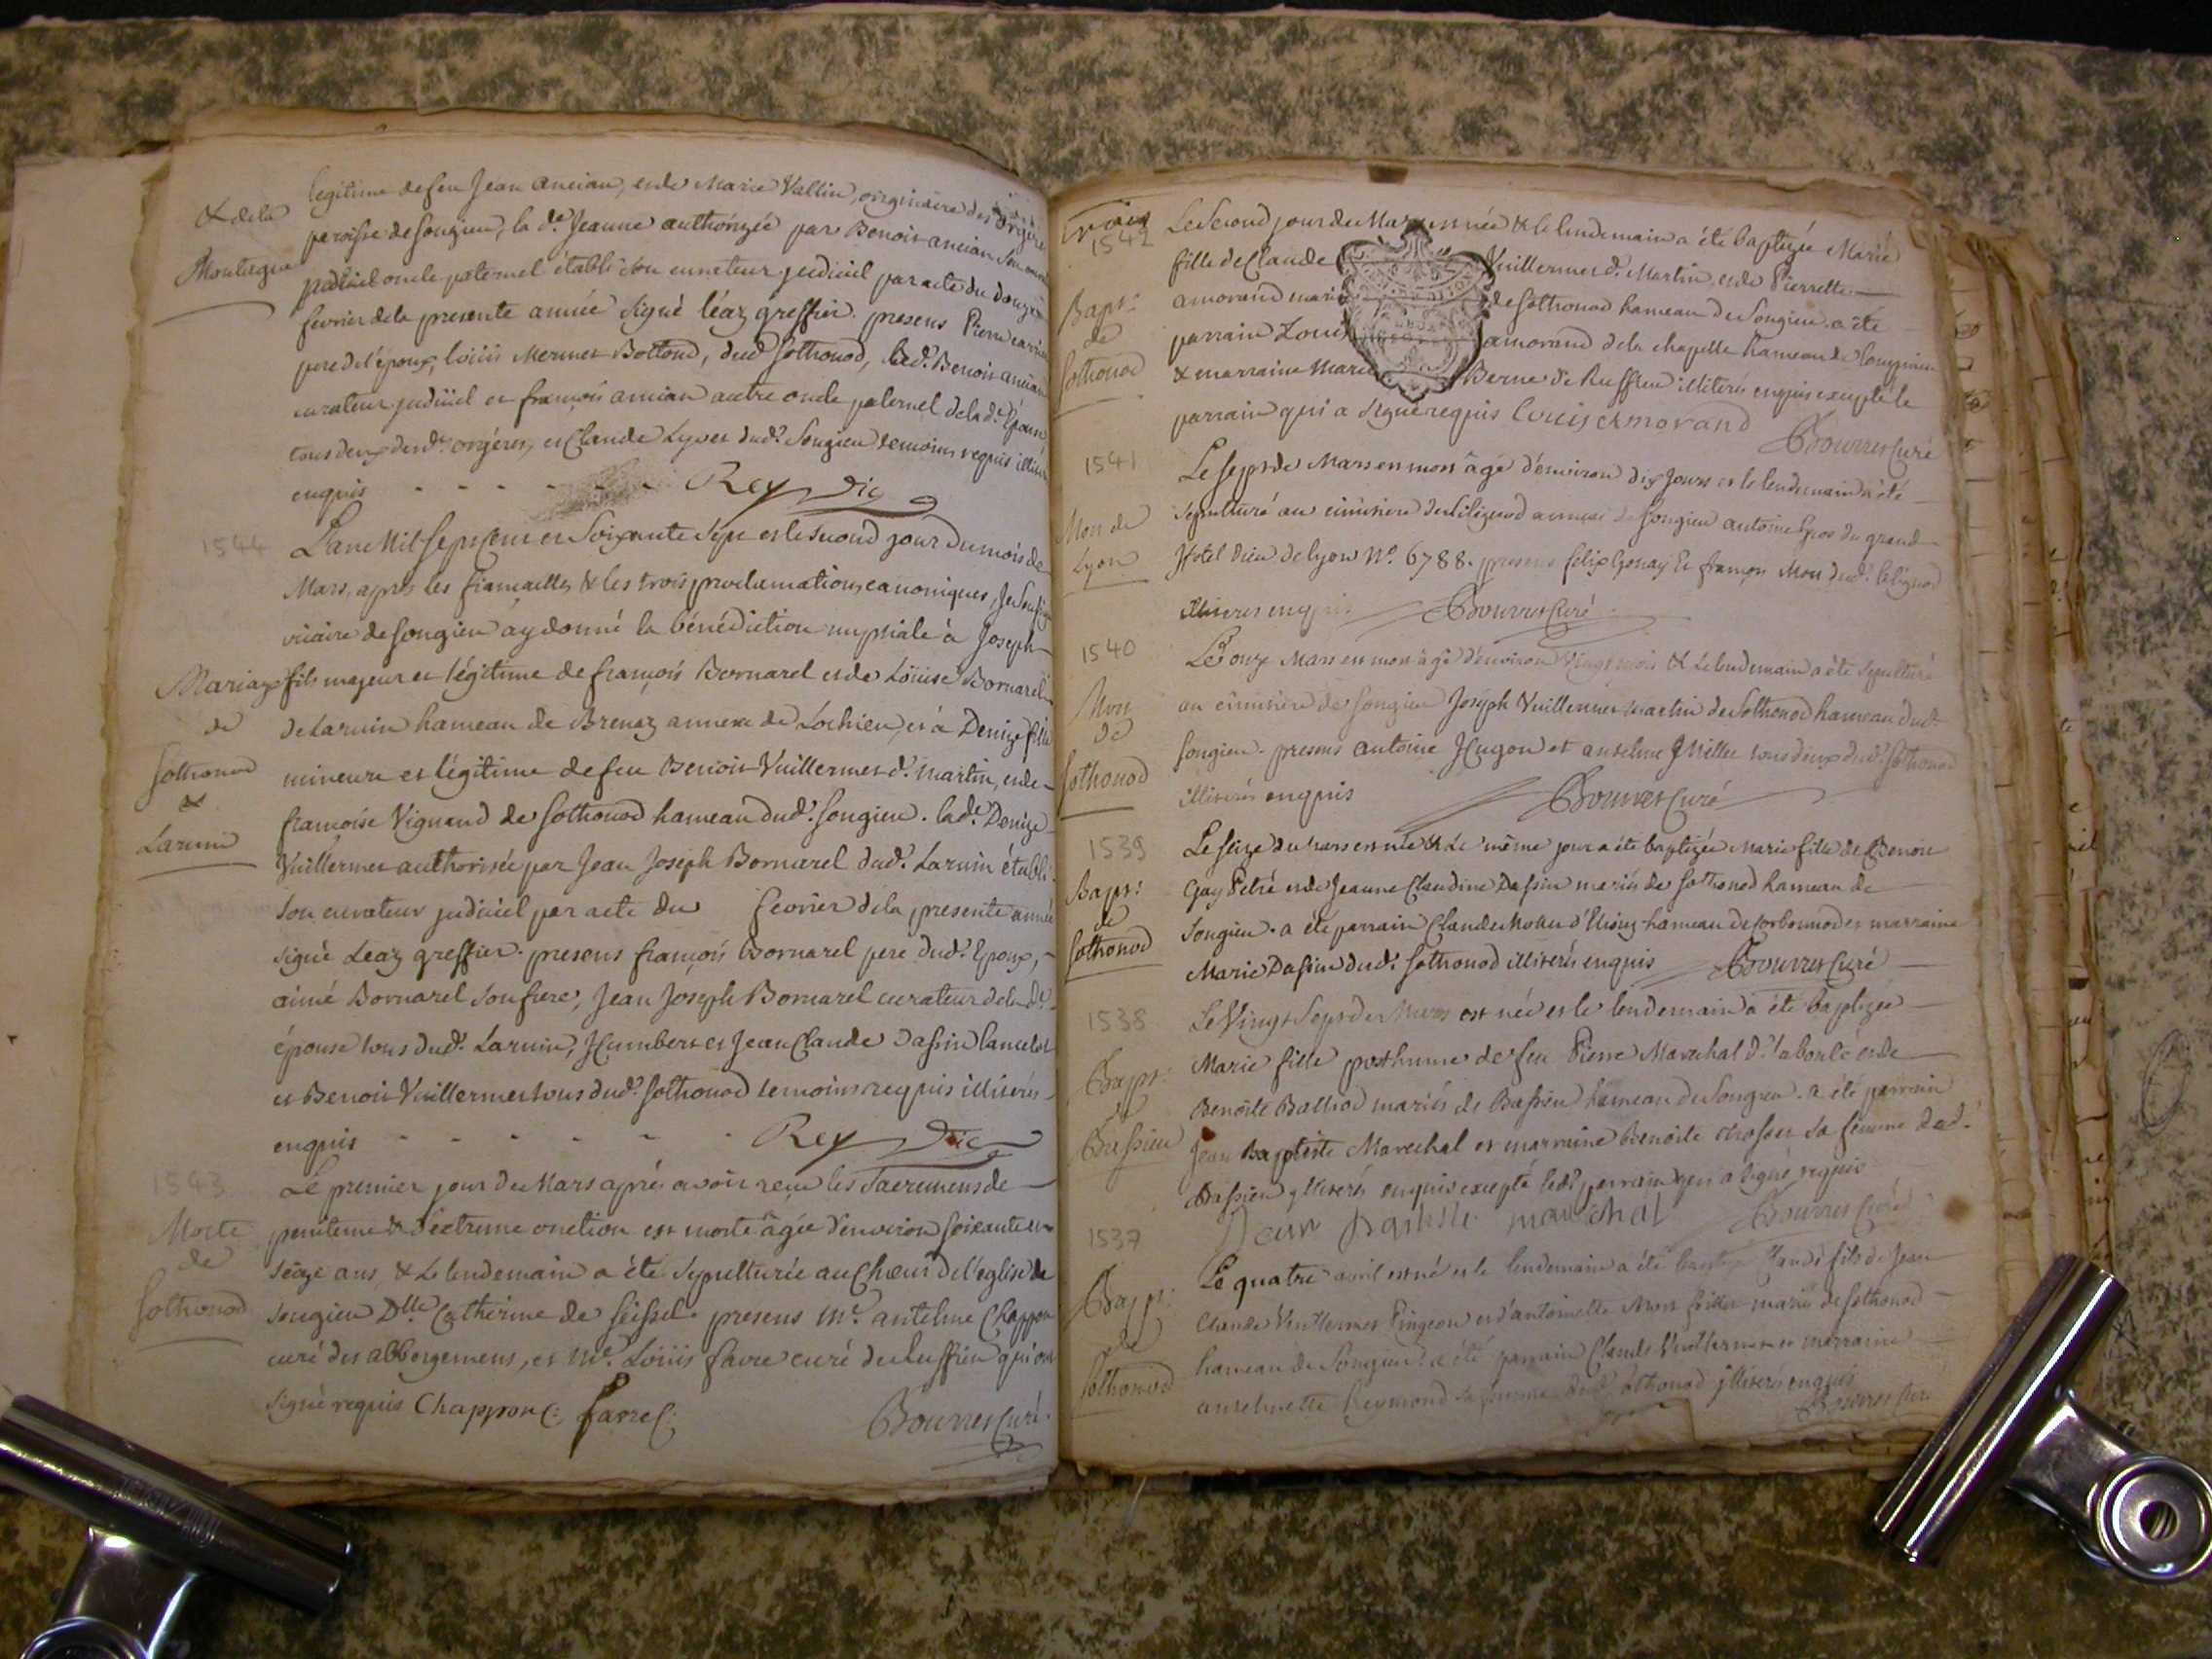 legitime de feu Jean ancian, et de Marie Vallin, originaire des orgères
& de la
paroisse de songieu, la de. Jeanne authorizée par Benoit ancian son
Montagne
oncle paternel établi son curateur judiciel par acte du douzè
fevrier de la presente année signé léaz greffier. presens Pierre
pere de l'époux, loüis Mermet Bottond, dud. sothonod, led. Benoit ancian
curateur judiciel et françois ancian autre oncle paternel de la de. Epouse
tous deux desd. orgères, et Claude Lyvet dud. Songieu temoins requis illitér
enquis - - - - - - Rey Vic
1544
L'an Mil sept Cent et Soixante Sept et le second jour du mois de
Mars, après les fiançailles & les trois proclamations canoniques, Je Soussig
vicaire de songieu ay donné la bénédiction nuptiale à Joseph
Mariage
de
sothonod
&
Laruin
fils majeur et légitime de françois Bornarel et de Loüise Bornarel
de Laruin hameau de Brenaz annexe de Lochieu, et à Denize fille
mineure et légitime de feu Benoit Vuillermet d. Martin, et de
françoise Vignand de sothonod hameau dud. songieu. lad. Denize
Vuillermet authorisée par Jean Joseph Bornarel dud. Laruin établi
son curateur judiciel par acte du fevrier de la presente année
signé Leaz greffier. presens françois Bornarel pere dud. Epoux,
aimé Bornarel son frere, Jean Joseph Bornarel curateur de la De.
épouse tous dud. Laruin, Humbert et Jean Claude Dassin lancelot
et Benoit Vuillermet tous dud. sothonod temoins requis illitérés
enquis - - - - - - Rey Vic
1543
Morte
de
sothonod
Le premier jour de Mars après avoir reçu les Sacremens de
penitence & d'extreme onction est morte âgée d'environ soixante et
seize ans, & Le lendemain a été sepulturée au Chœur de l'eglise de
songieu Dlle Catherine de seissel. presens Mre. antelme Chappon
curé des abbergemens, et Mre. Loüis favre curé de Ruffieu qui ont
signé requis Chappon C. favre C.
Bourret Curé
1542
Bapt:
de
sothonod
Le Second jour de Mars est née & le lendemain a été baptizée Marie
fille de Claude Vuillermet d. Martin, et de Pierrette
amorand mariés de sothonod hameau de Songieu. a été
parrain Louis amorand de la chapelle hameau de lompnieu
& marraine Marie Berne de Ruffieu illiterés enquis excepté le
parrain qui a signé requis Louis amorand
Bourret Curé
1541
Mort de
Lyon
Le sept de Mars est mort âgé d'environ dix Jours et le lendemain a été
sepulturé au cimitiere de lilignod annexe de songieu antoine Gros du grand
Hotel Dieu de lyon No. 6788. presens felix Gonay & françois Mon dud. lilignod
illiteres enquis Bourret Curé
1540
Mort
de
sothonod
Le onze Mars est mort âgé d'environ vingt mois & Le lendemain a été sepulturé
au cimitiere de songieu Joseph Vuillermet Martin de Sothonod hameau dud.
songieu. presens antoine Hugon et antelme Millet tous deux dud. sothonod
illiterés enquis Bourret Curé
1539
Bapt:
de
sothonod
Le seize de mars est née & Le même jour a été baptizée Marie fille de Benoit
Guy Petré et de Jeanne Claudine Dassin mariés de sothonod hameau de
songieu. a été parrain Claude Mollet hameau de Corbonnod et marraine
Marie Dassin dud. sothonod illiterés enquis Bourret Curé
1538
Bapt:
de
Bassieu
Le Vingt Sept de Mars est née et le lendemain a été baptizée
Marie fille posthume de feu Pierre Marechal d. et de
Benoite Balliod mariés de Bassieu hameau de Songieu. a été parrain
Jean Baptiste Marechal et marraine Benoite Chosset sa femme dud.
Bassieu illiterés enquis excepté led. parrain qui a signé requis
Jean Baptiste marechal Bourret Curé
1537
Bapt:
de
Sothonod
Le quatre avril est né et le lendemain a été baptizé Claude fils de Jean
Claude Vuillermet Pingeon et d'antoinette Mort mariés de sothonod
hameau de Songieu. a été parrain Claude Vuillermet et marraine
anthelmette Reymond sa femme dud. sothonod illiterés enquis
Bourret Curé